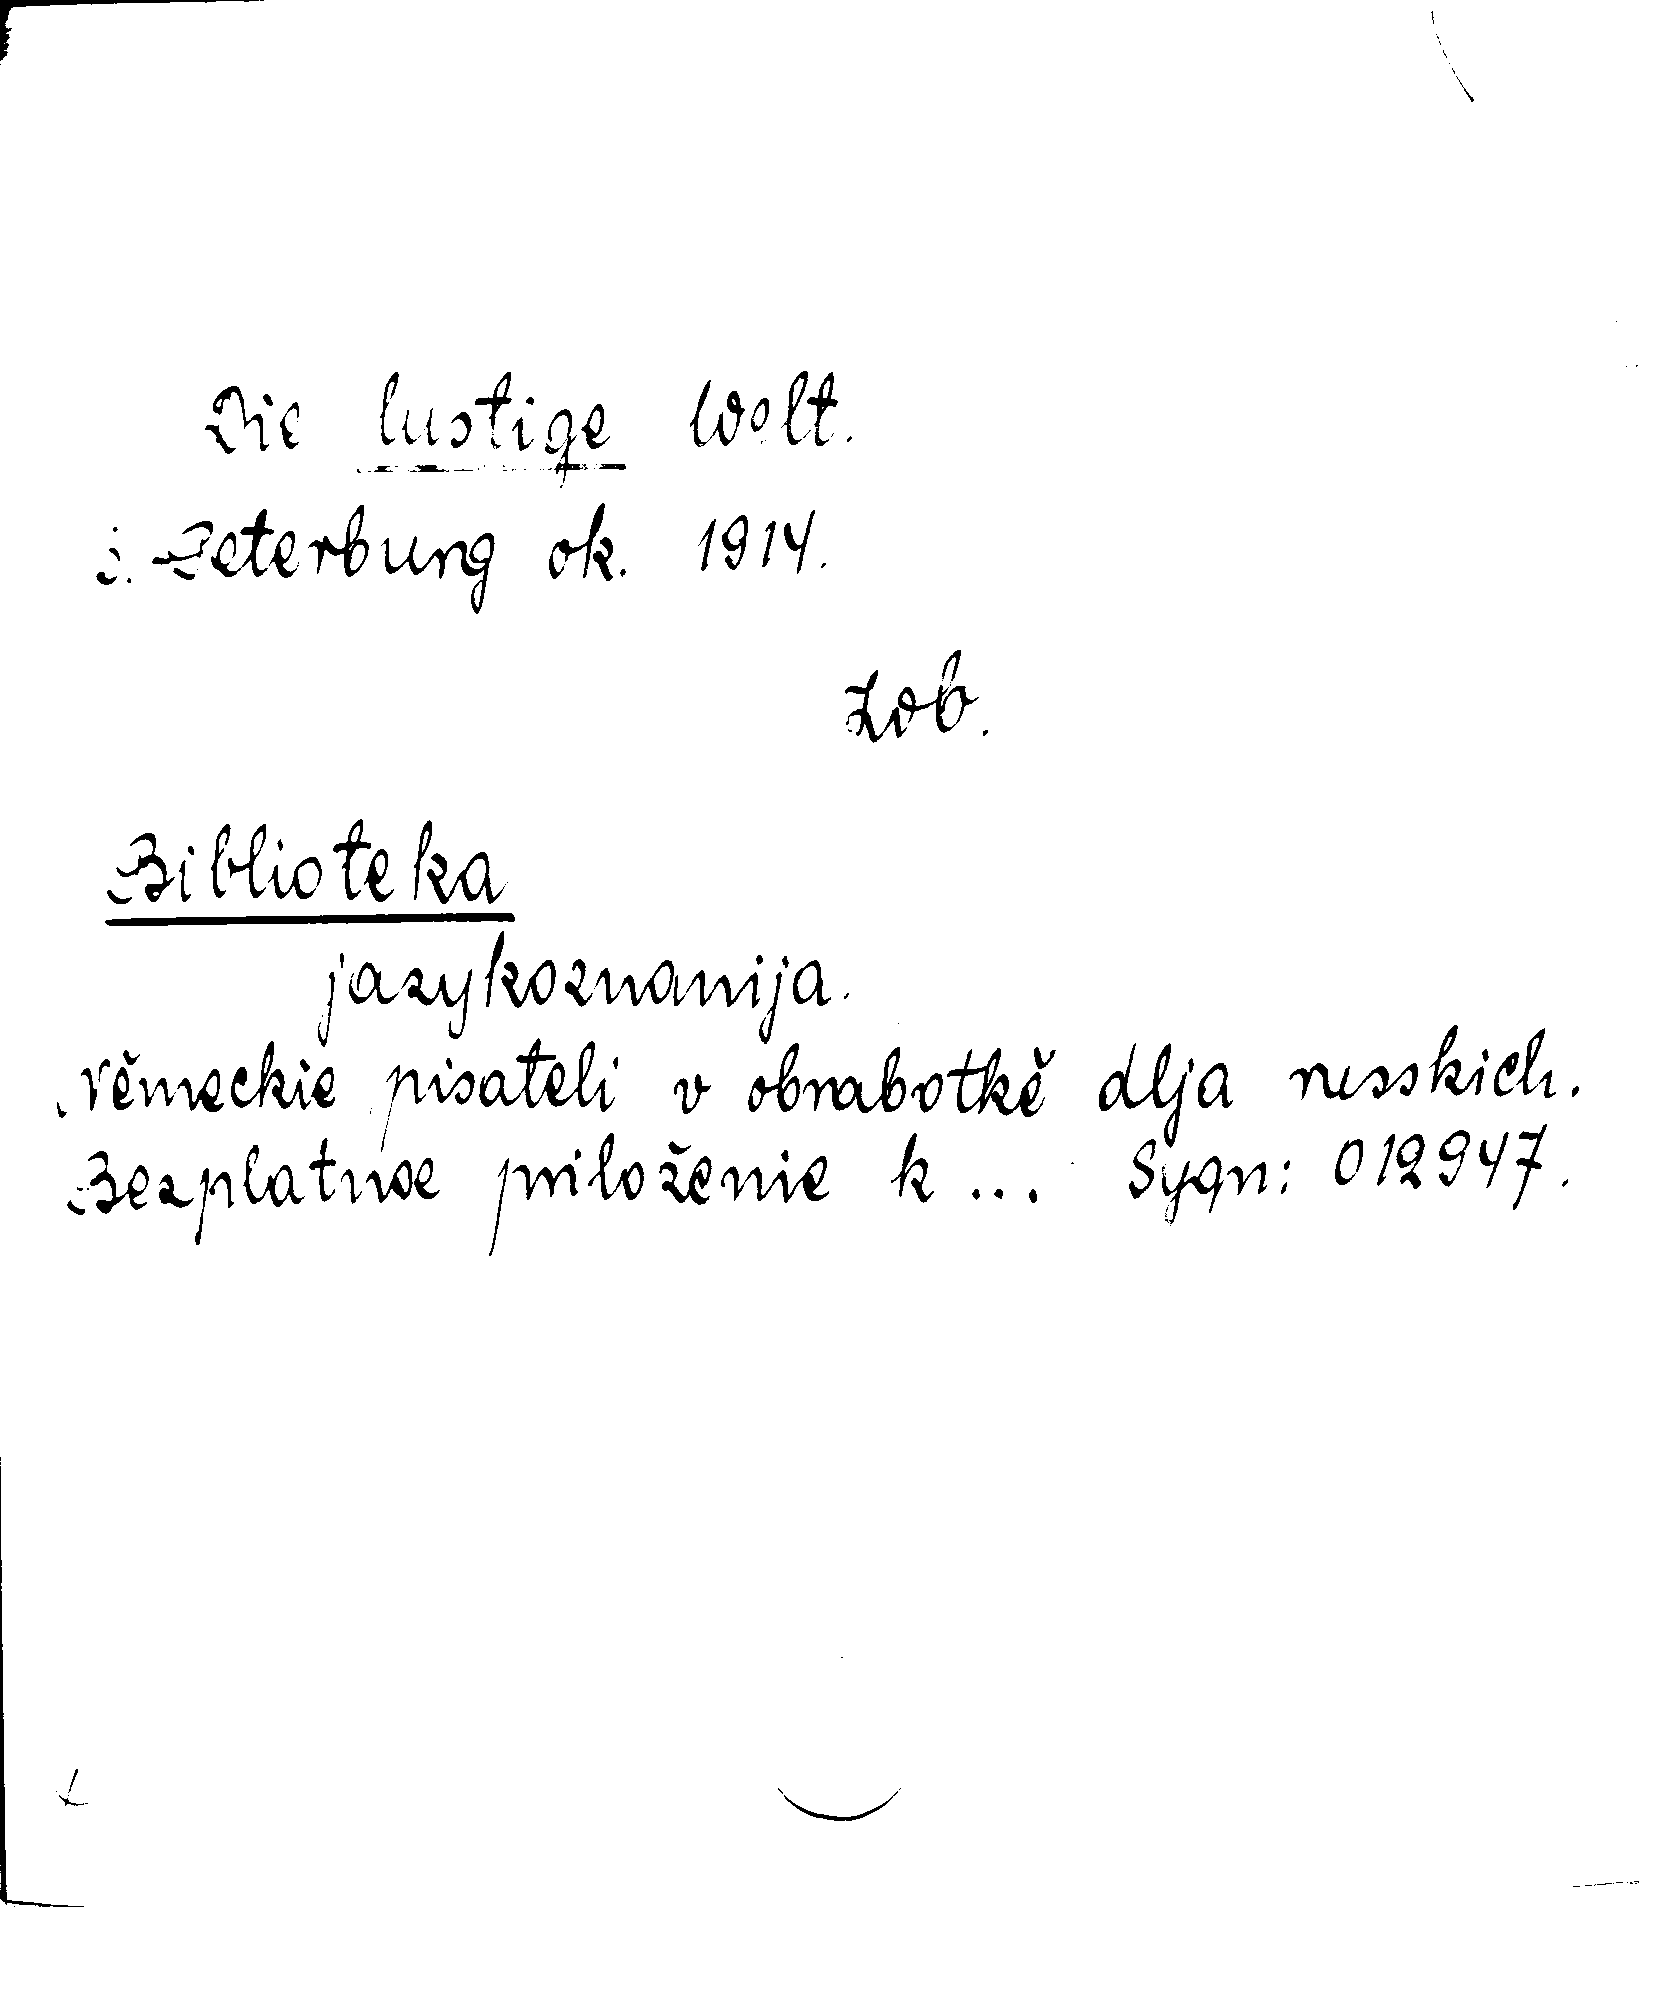 Die lustige Welt.
S. Peterburg ok. 1914.
Zob.
Biblioteka
jazykoznanija.
Německie pisateli v obrabotkě dlja russkich.
Bezplatnoe priloženie k ... Sygn: 012947.